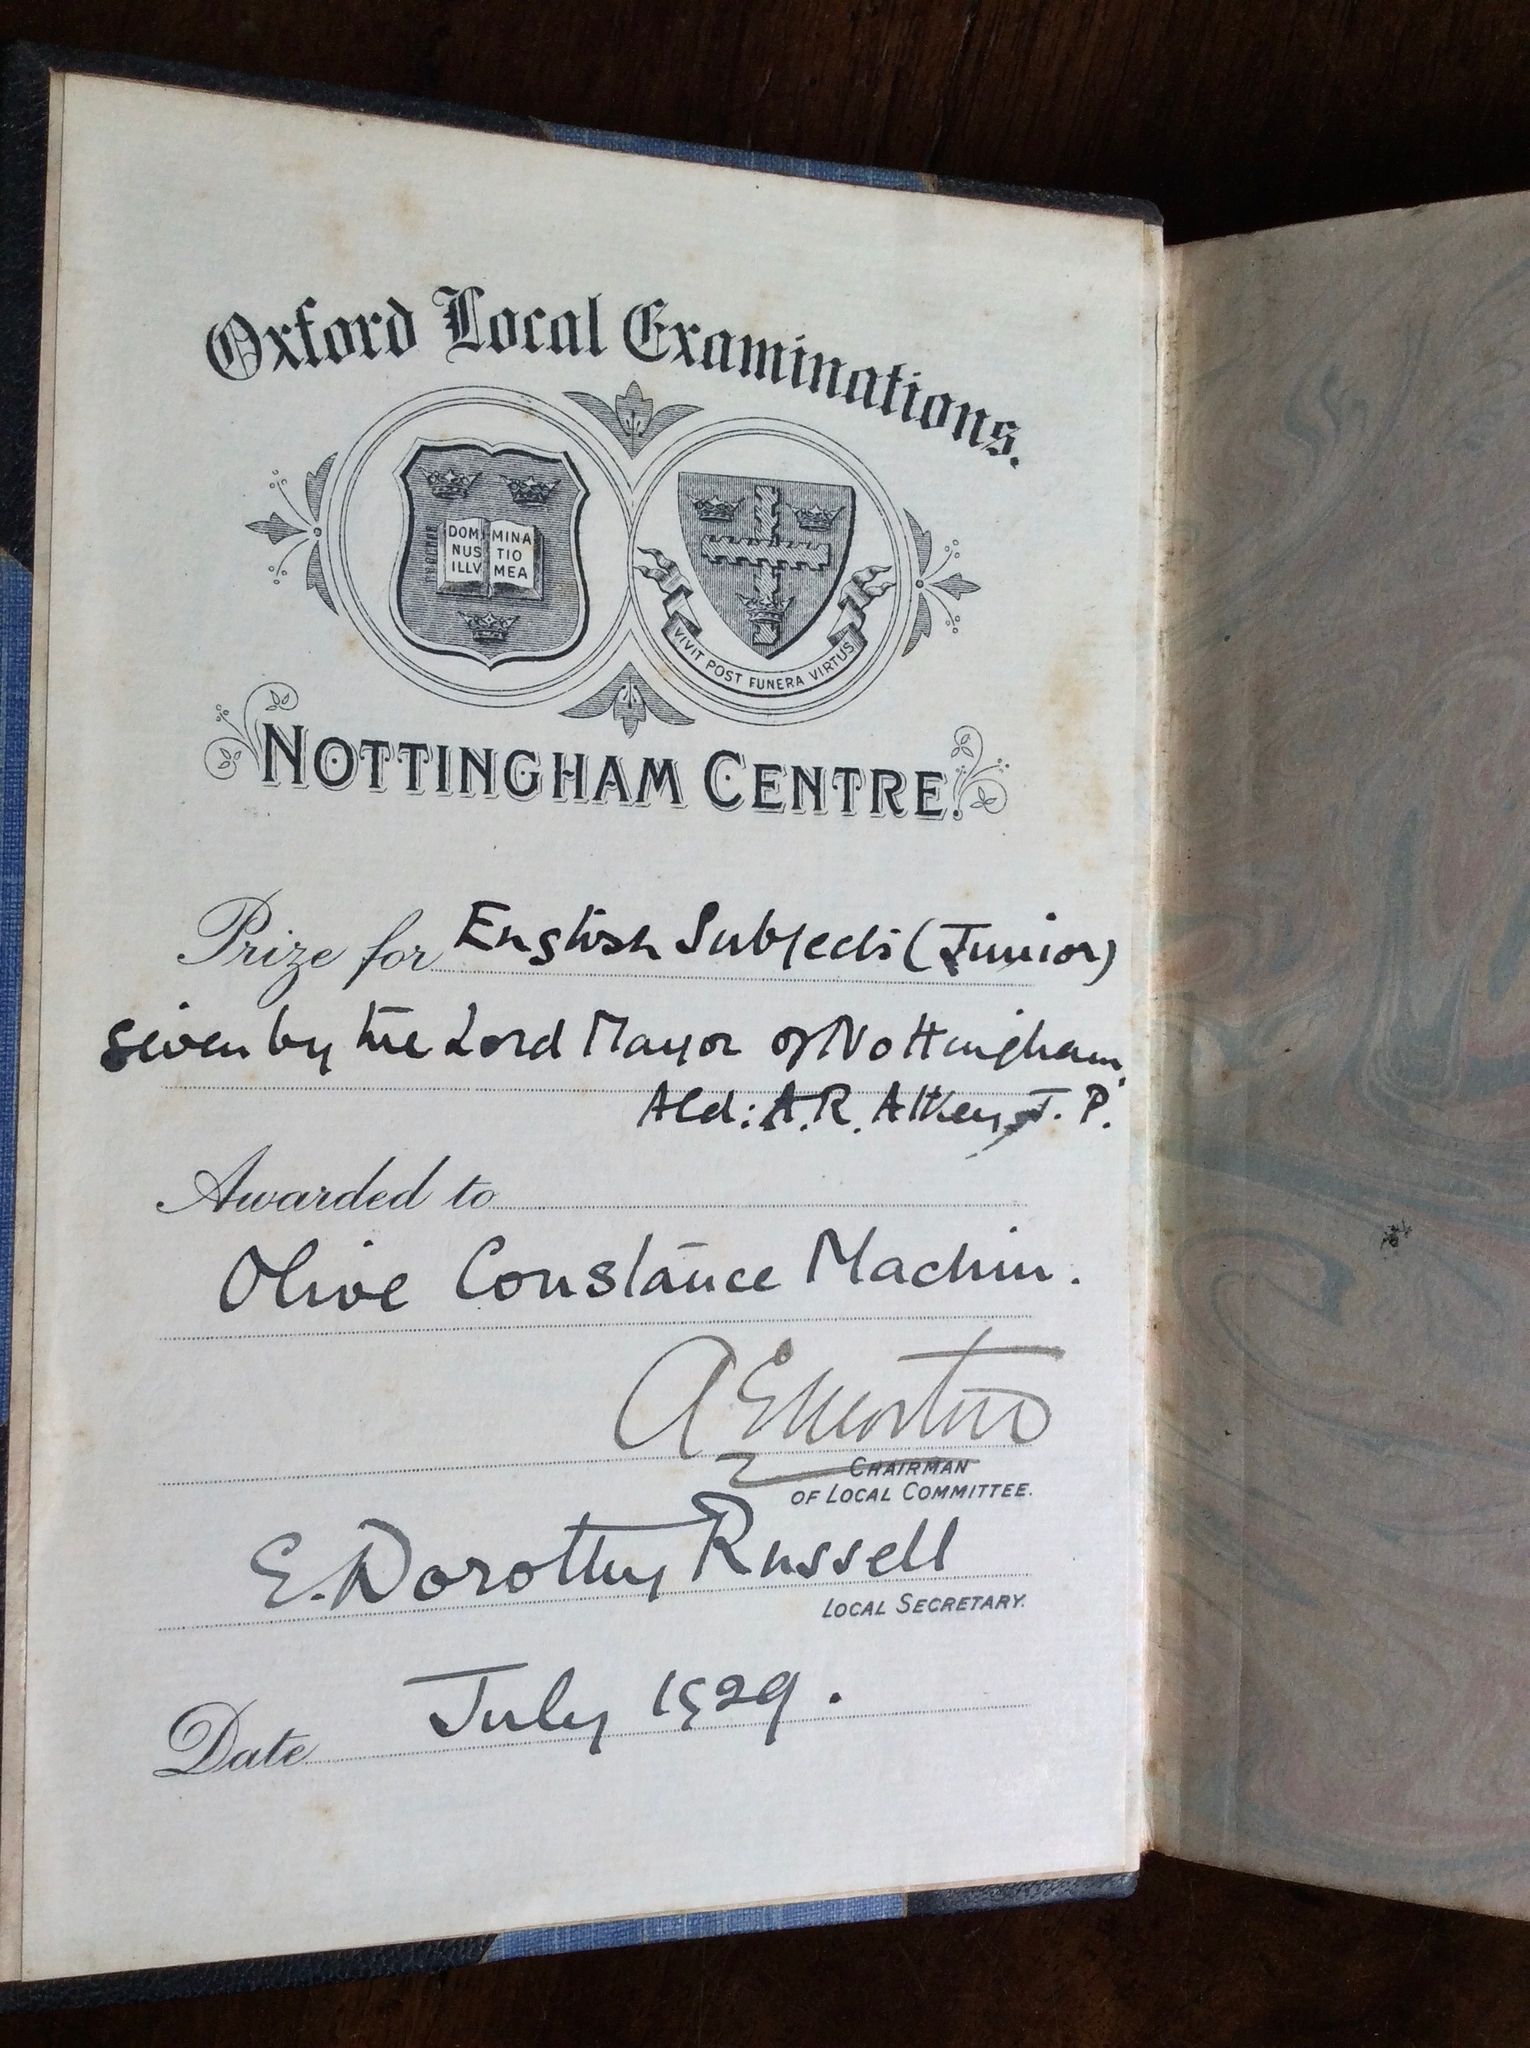 Oxford Local Examinations.
DOMI
NUS
ILLV
MINA
TIO
MEA
VIVIT POST FUNERA VIRTUS
NOTTINGHAM CENTRE.
Prize for English Subjects (Junior)
given by the Lord Mayor of Nottingham,
Ald: A. R. Atkey, J. P.
Awarded to
Olive Constance Machin.
CHAIRMAN
OF LOCAL COMMITTEE.
E. Dorothy Russell
LOCAL SECRETARY.
Date July 1929.